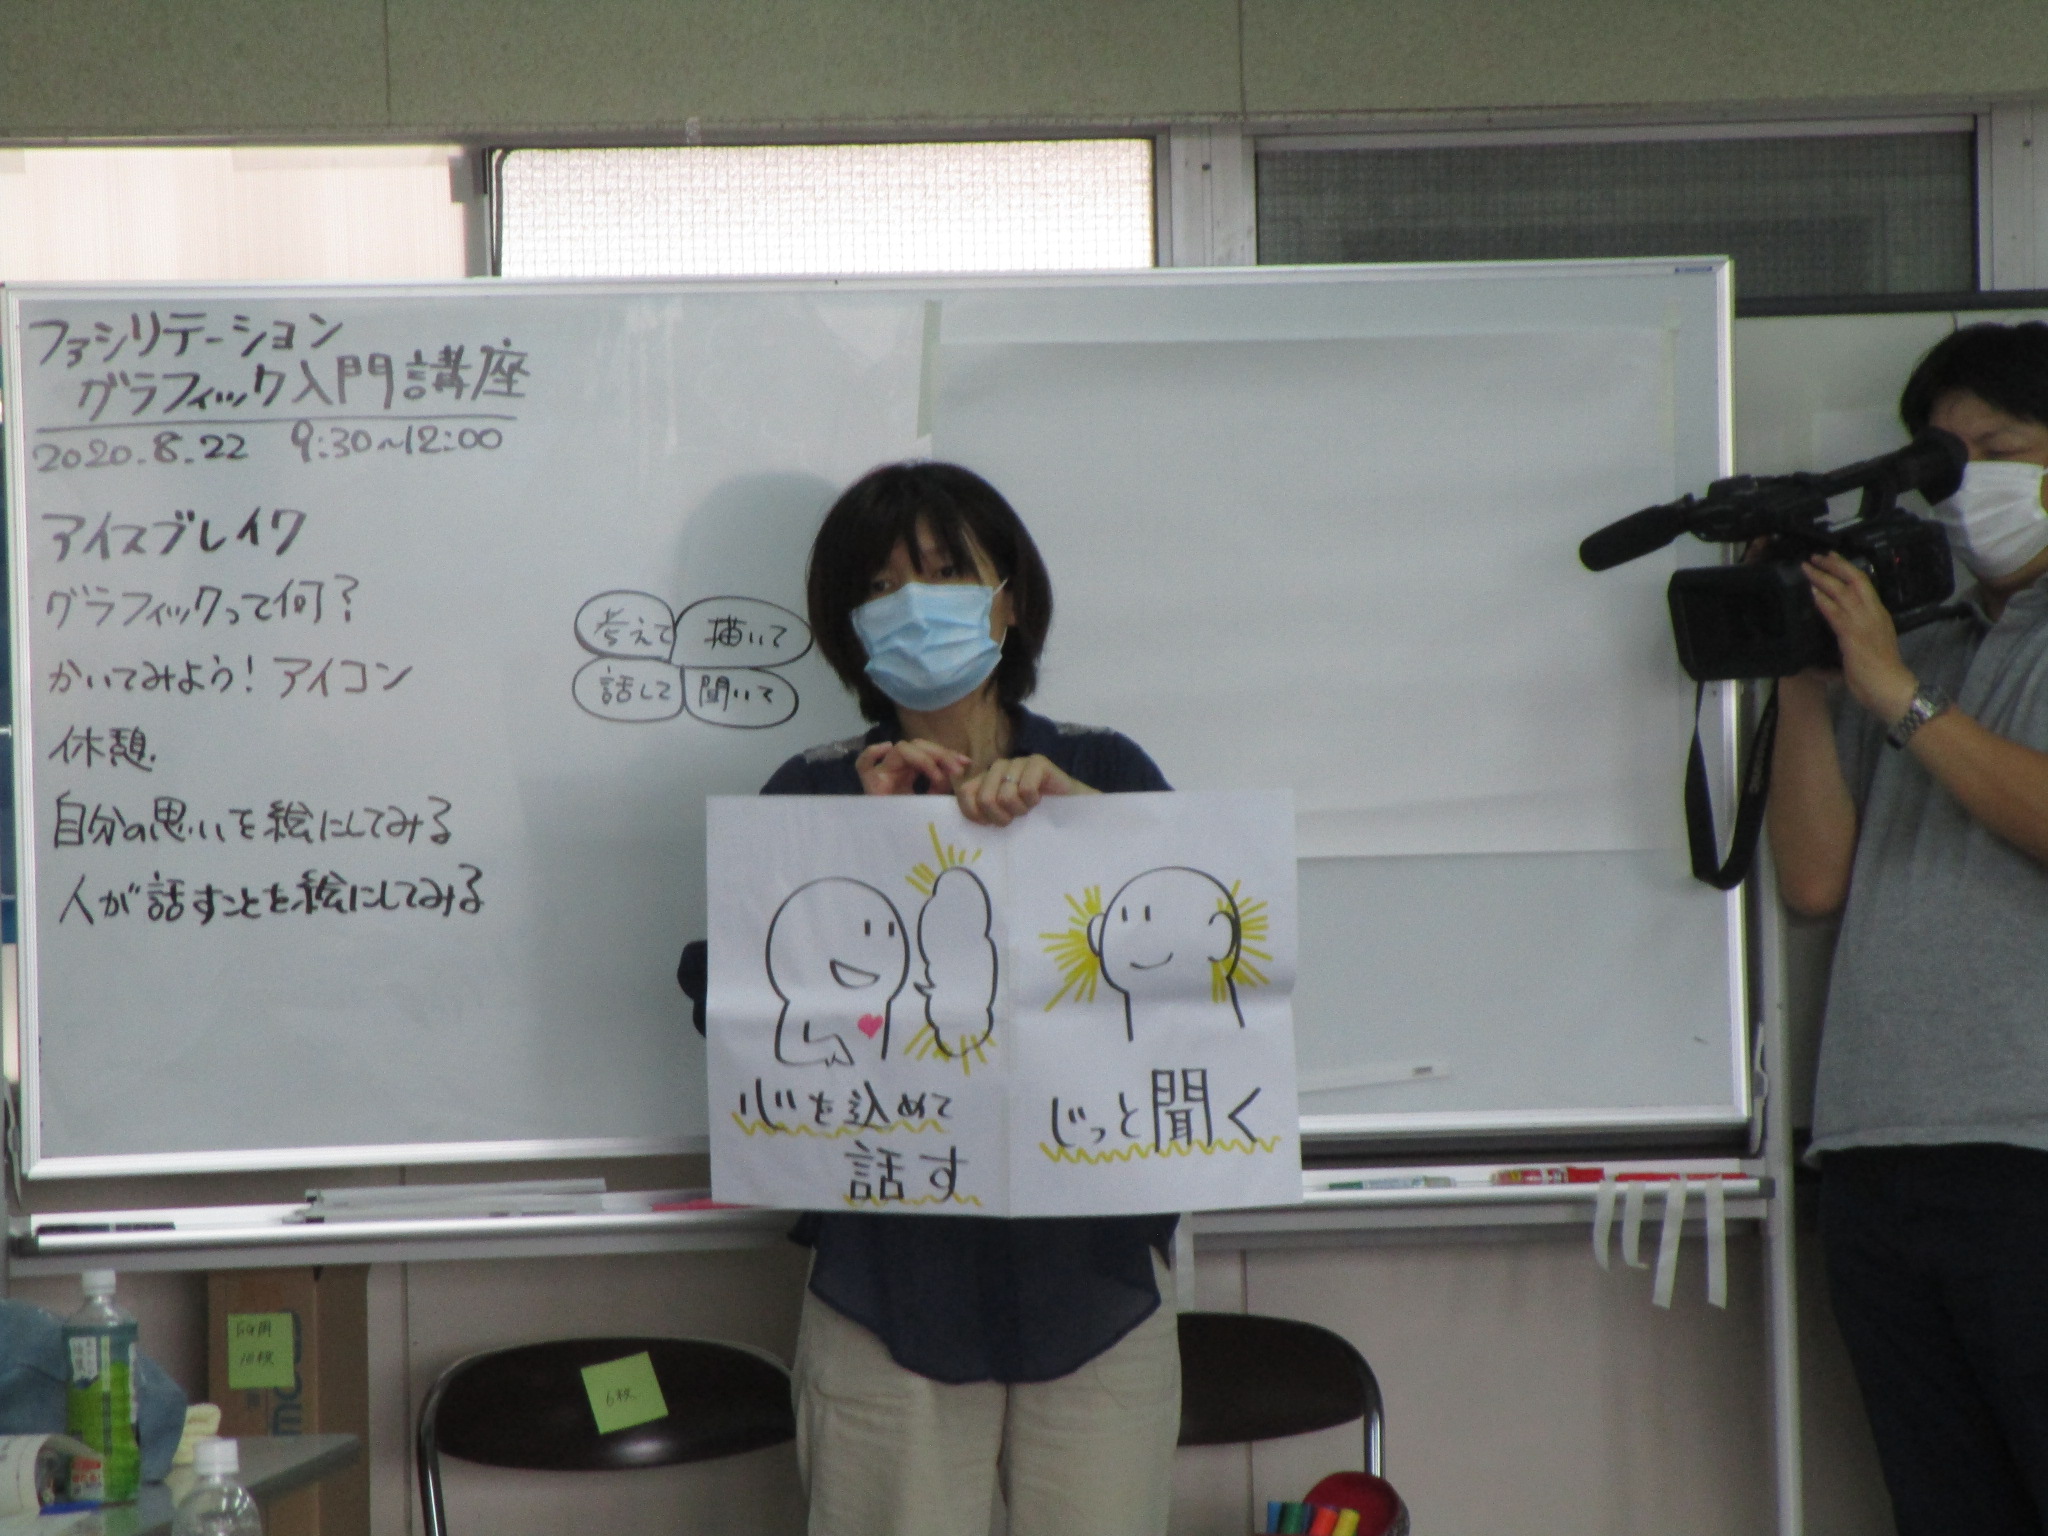 ファシリテーション
グラフィック入門講座
2020.8.22 9:30~12:00
アイスブレイク
グラフィックって何?
かいてみよう! アイコン
休憩.
自分の思いを絵にしてみる
人が話すことを絵にしてみる
考えて 描いて
話して 聞いて
心を込めて
話す
じっと聞く
6枚